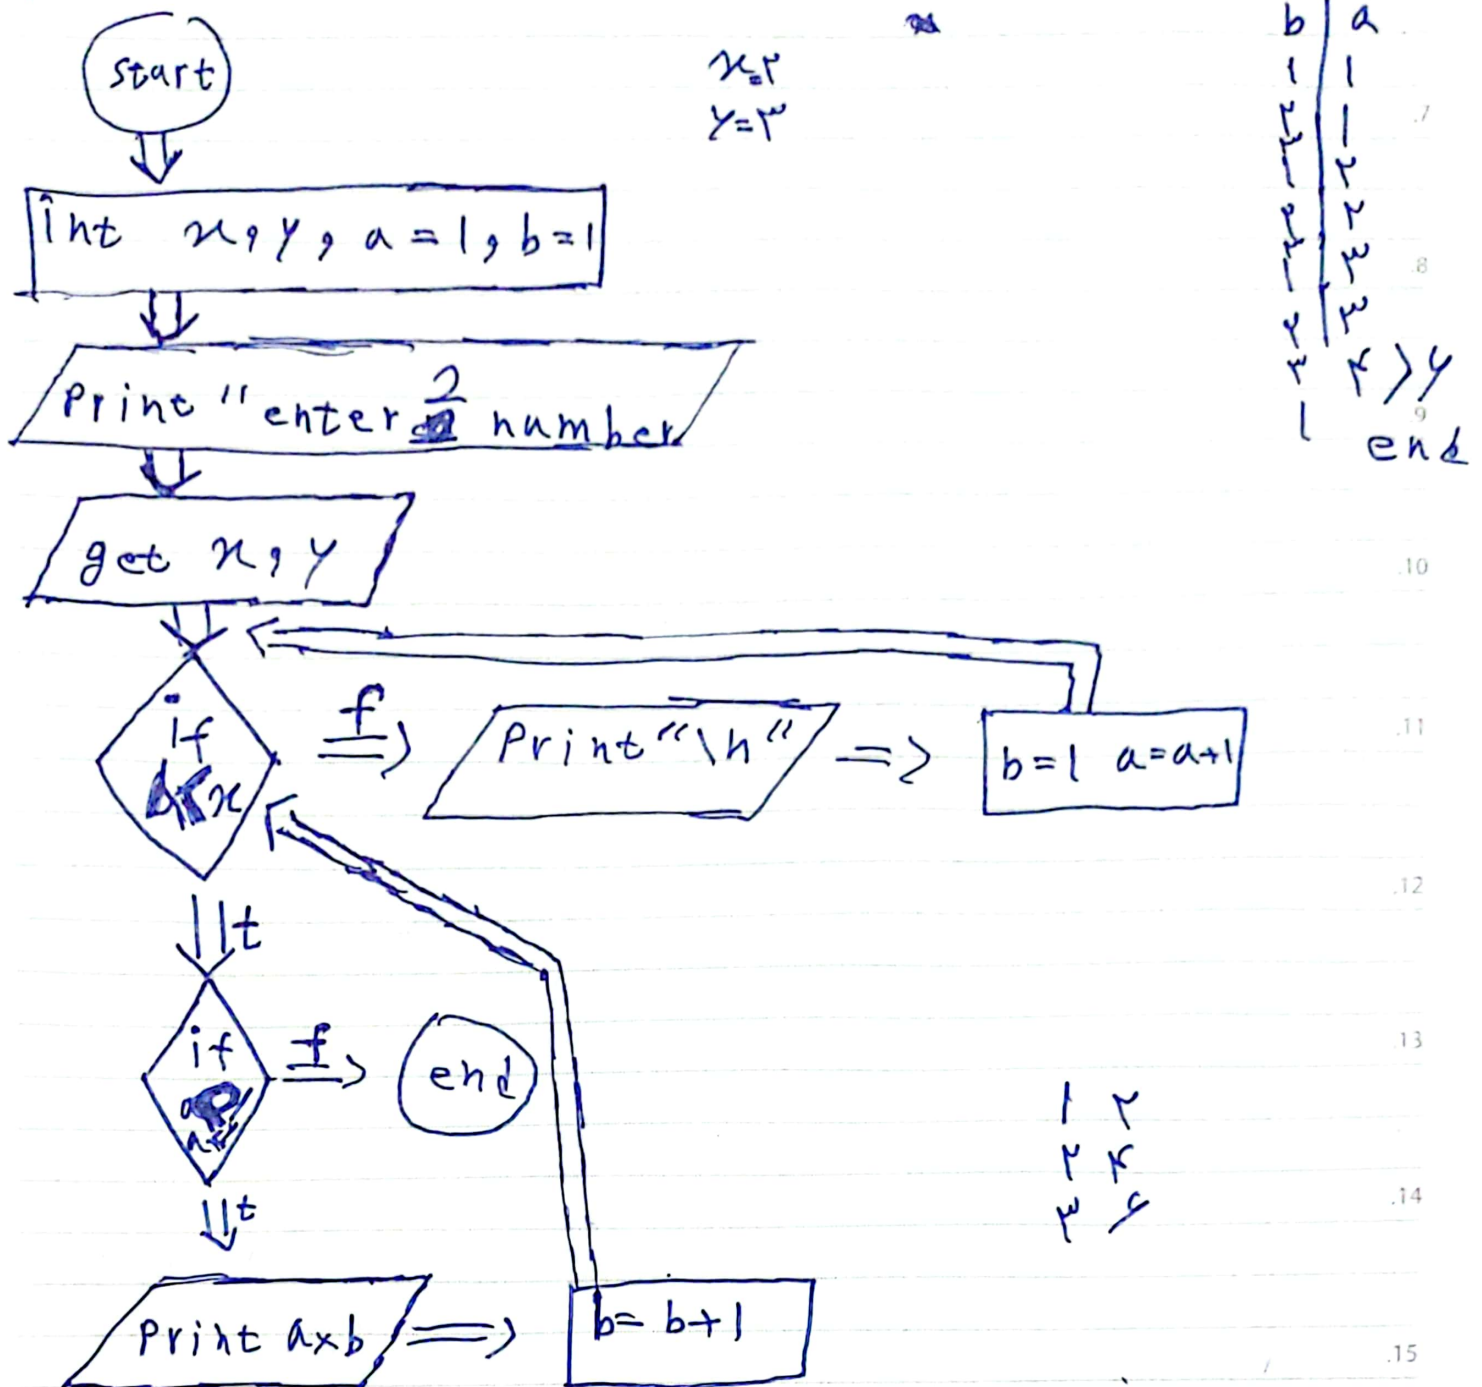 start
int x, y, a = 1, b = 1
Print "enter 2 number
get x, y
if
x
f
Print "\n"
b = 1 a = a+1
t
if
f
end
t
Print a×b
b = b + 1
x=۲
y=۳
b a
۱ ۱
۲ ۱
۳
۱ ۲
۲ ۲
۳
۱ ۳
۲ ۳
۳ ۴ > y
۱ end
۱ ۲
۲ ۴
۳ ۶
.7
.8
9
.10
.11
.12
.13
.14
.15